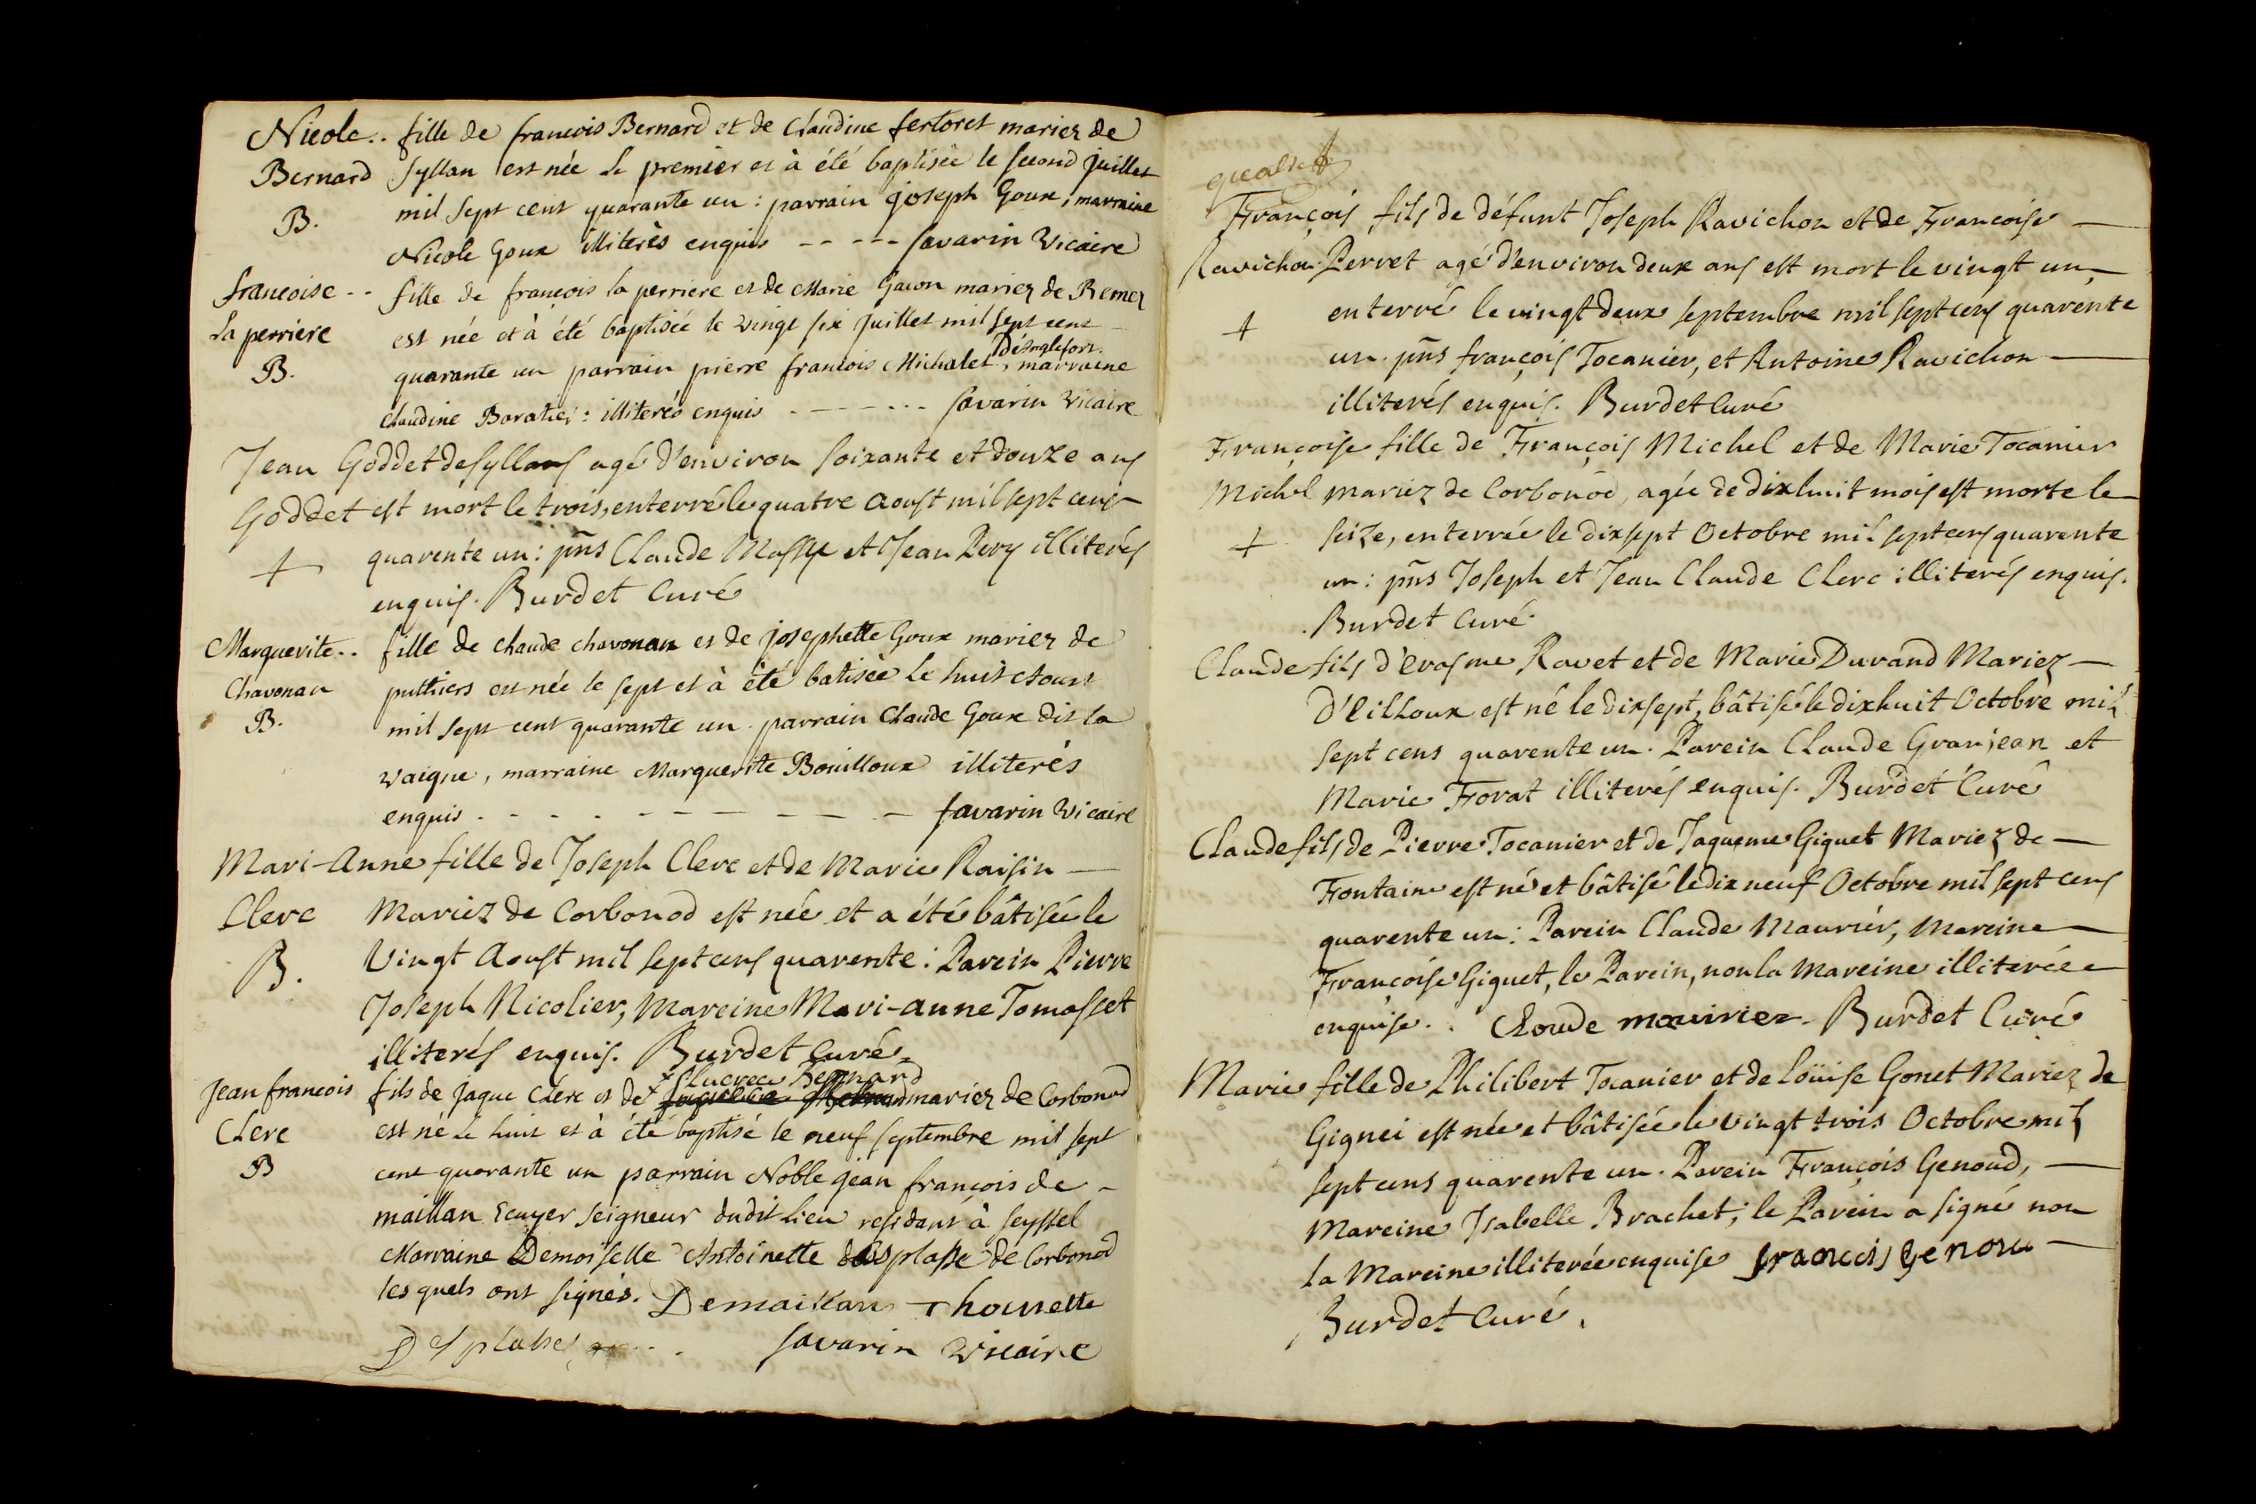 Nicole.. fille de francois Bernard et de Claudine fertoret mariez de
Bernard Syllan est née le premier et à été baptisée le second juillet
B. mil sept cent quarante un : parrain joseph Goux, marraine
Nicole Goux illiterès enquis - - - - - Savarin Vicaire
francoise - - fille de françois la perriere et de Marie Gacon mariez de Remez
La perriere est née et à été baptisée le vingt six juillet mil sept cent
D'Anglefort
B. quarante un parrain pierre francois Michalet, marraine
Claudine Baratier : illiterés enquis - - - - - - Savarin Vicaire
Jean Goddet de Syllans agé d'environ soixante et douze ans
Goddet est mort le trois, enterré le quatre Aoust mil sept cens
+ quarente un : pñs Claude Massye et Jean Pery illiterés
enquis. Burdet Curé
Marguerite.. fille de claude chavonan et de josephette Goux mariez de
Chavonan puthiers est née le sept et à été batisée le huit Aoust
B. mil sept cent quarante un parrain Claude Goux dit la
vaigne, marraine Marguerite Bouilloux illiterès
enquis - - - - - - - - - - Savarin Vicaire
Mari-Anne fille de Joseph Clerc et de Marie Raisin —
Clerc Mariez de Corbonod est née et a été bâtisée le
B. Vingt Aoust mil sept cens quarente : Parein Pierre
Joseph Nicolier, Mareine Mari-anne Tomasset
illiterés enquis. Burdet Curé
Lucrece Bernard
Jean francois fils de jaque Clerc et de mariez de Corbonod
Clerc est né le huit et à été baptisé le neuf septembre mil sept
B cent quarante un parrain Noble jean françois de -
maillan Ecuyer seigneur dudit lieu residant à seyssel
Marraine Demoiselle Antoinette desplasse de Corbonod
les quels ont signés. Demaillan Thoinette
Desplasse Savarin Vicaire
François fils de défunt Joseph Ravichon et de Francoise —
Ravichon Perret agé d'environ deux ans est mort le vingt un,
+ enterré le vingt deux septembre mil sept cens quarente
un. pñs françois Tocanier, et Antoine Ravichon —
illiterés enquis. Burdet Curé
Françoise fille de François Michel et de Marie Tocanier
Michel mariez de Corbonod, agée de dixhuit mois est morte le
+ seize, enterrée le dixsept Octobre mil sept cens quarente
un : pñs Joseph et Jean Claude Clerc illiterés enquis.
Burdet Curé.
Claude fils d'Erasme Ravet et de Marie Durand Mariez —
D'Eilloux est né le dixsept, bâtisé le dixhuit Octobre mil
sept cens quarente un. Parein Claude Granjean et
Marie Forat illiterés enquis. Burdet Curé
Claude fils de Pierre Tocanier et de Jaqueme Giguet Mariez de —
Fontaine est né et bâtisé le dix neuf Octobre mil sept cens
quarente un : Parein Claude Maurier, Mareine —
Françoise Giguet, le Parein, non la Mareine illiterée
enquise. . Cloude mauirier. Burdet Curé
Marie fille de Philibert Tocanier et de Loüise Gonet Mariez de
Gignei est née et bâtisée le vingt trois Octobre mil
sept cens quarente un. Parein François Genoud, —
Mareine Isabelle Brachet ; le Parein a signé non
la Mareine illiterée enquise francois Genou —
Burdet Curé.